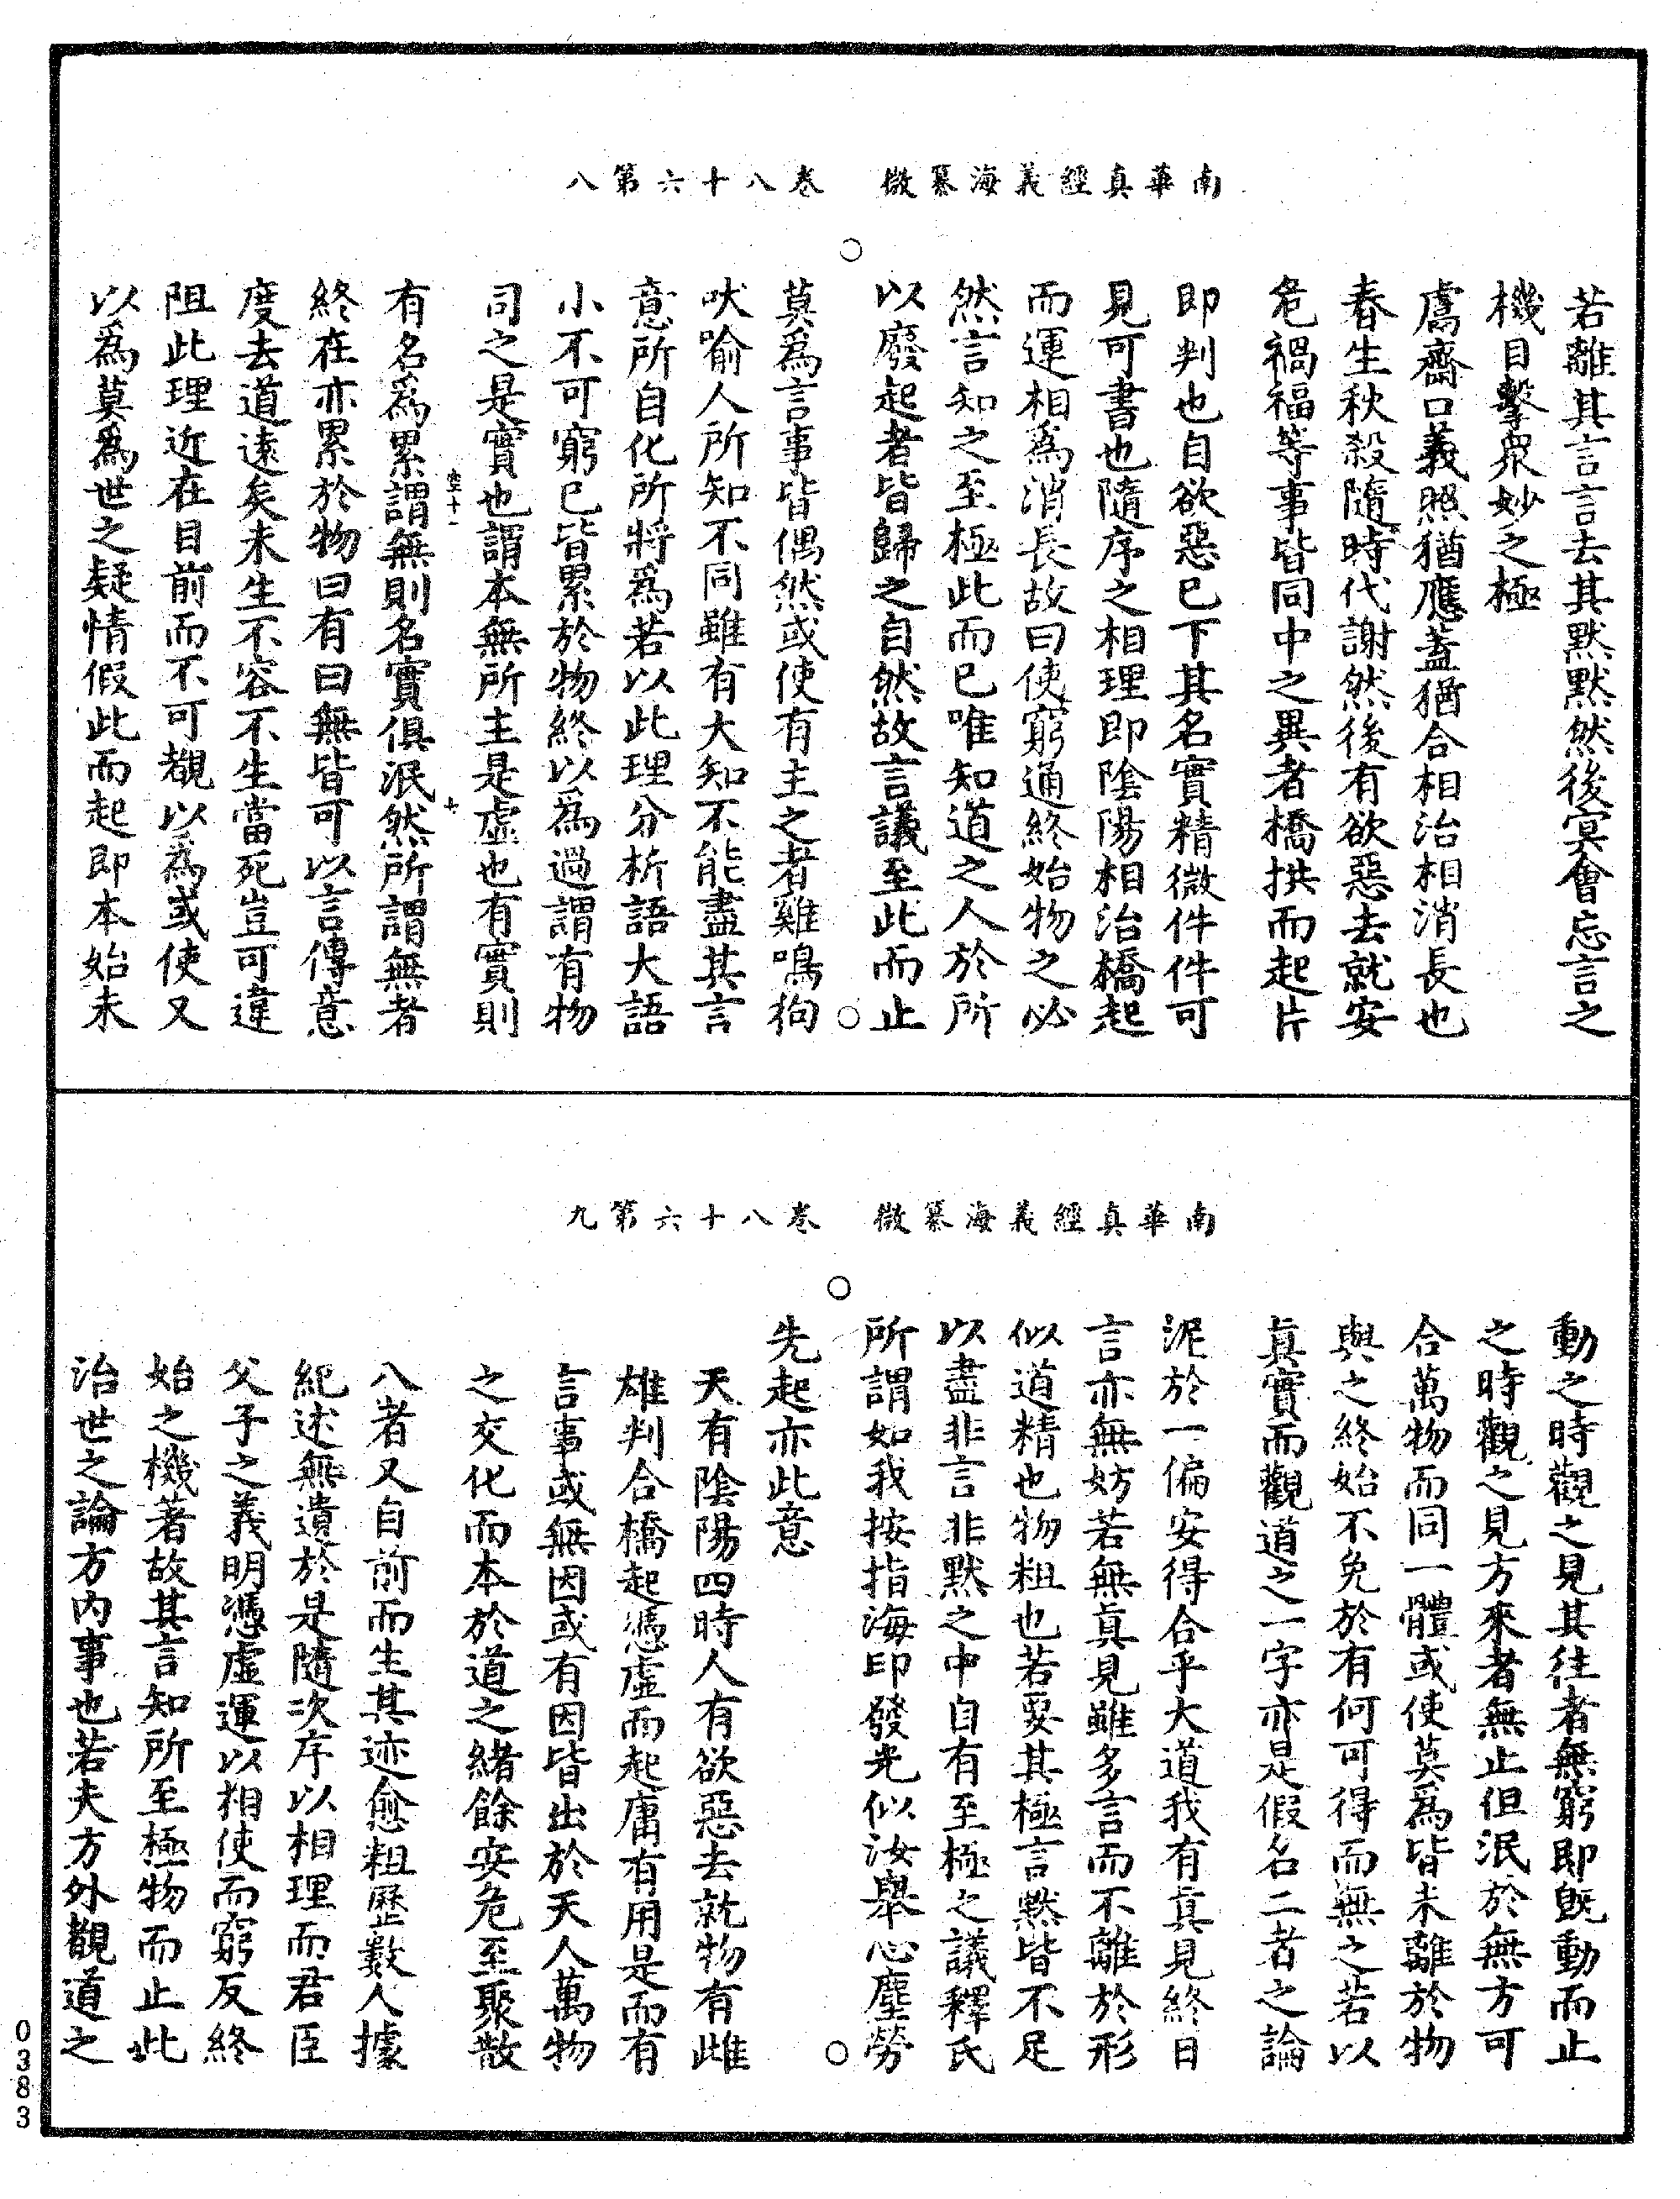 南華真經義海纂微　卷八十六第八
若離其言言去其默默然後冥會忘言之
機目擊衆妙之極
鬳齋口義照猶應蓋猶合相治相消長也
春生秋殺隨時代謝然後有欲惡去就安
危禍福等事皆同中之異者橋拱而起片
即判也自欲惡已下其名實精微件件可
見可書也隨序之相理即陰陽相治橋起
而運相爲消長故曰使窮通終始物之必
然言知之至極此而已唯知道之人於所
以廢起者皆歸之自然故言議至此而止
莫爲言事皆偶然或使有主之者雞鳴狗
吠喻人所知不同雖有大知不能盡其言
意所自化所將爲若以此理分析語大語
小不可窮已皆累於物終以爲過謂有物
司之是實也謂本無所主是虛也有實則
有名爲累謂無則名實俱泯然所謂無者
終在亦累於物曰有曰無皆可以言傳意
度去道遠矣未生不容不生當死豈可違
阻此理近在目前而不可覩以爲或使又
以爲莫爲世之疑情假此而起即本始未
南華真經義海纂微　卷八十六第九
動之時觀之見其往者無窮即旣動而止
之時觀之見方來者無止但泯於無方可
合萬物而同一體或使莫爲皆未離於物
與之終始不免於有何可得而無之若以
眞實而觀道之一字亦是假名二者之論
泥於一偏安得合乎大道我有眞見終日
言亦無妨若無眞見雖多言而不離於形
似道精也物粗也若要其極言黙皆不足
以盡非言非默之中自有至極之議釋氏
所謂如我按指海印發光似汝舉心塵勞
先起亦此意
天有陰陽四時人有欲惡去就物有雌
雄判合橋起憑虛而起庸有用是而有
言事或無因或有因皆出於天人萬物
之交化而本於道之緒餘安危至聚散
八者又自前而生其迹愈粗歷數人據
紀述無遺於是隨次序以相理而君臣
父子之義明憑虛運以相使而窮反終
始之機著故其言知所至極物而止此
治世之論方內事也若夫方外覩道之
0383